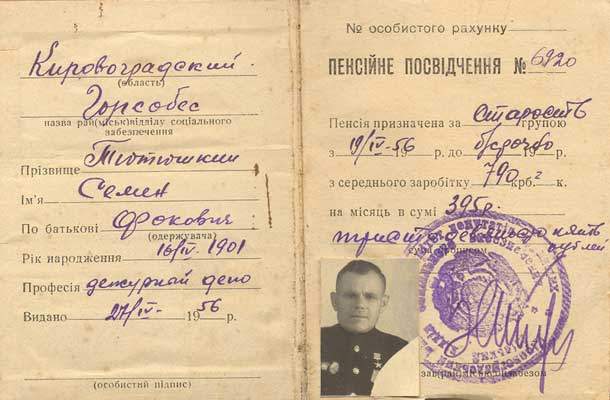 Кировоградский
(область)
Горсобес
назва рай(міськ)відділу соціального
забезпечення
Прізвище Тютюшкин
Ім'я Семен
По батькові Фокович
(одержувача)
Рік народження 16/IV. 1901
Професія дежурный депо
Видано 27/IV- 1956 р.
(особистий підпис)
№ особистого рахунку
ПЕНСІЙНЕ ПОСВІДЧЕННЯ № 6920
Пенсія призначена за старость
групою
з 19/IV-56 19 р. до бсрочно 19 р.
з середнього заробітку 790 крб. к.
на місяць в сумі 395р.
триста девяносто пять
рублей